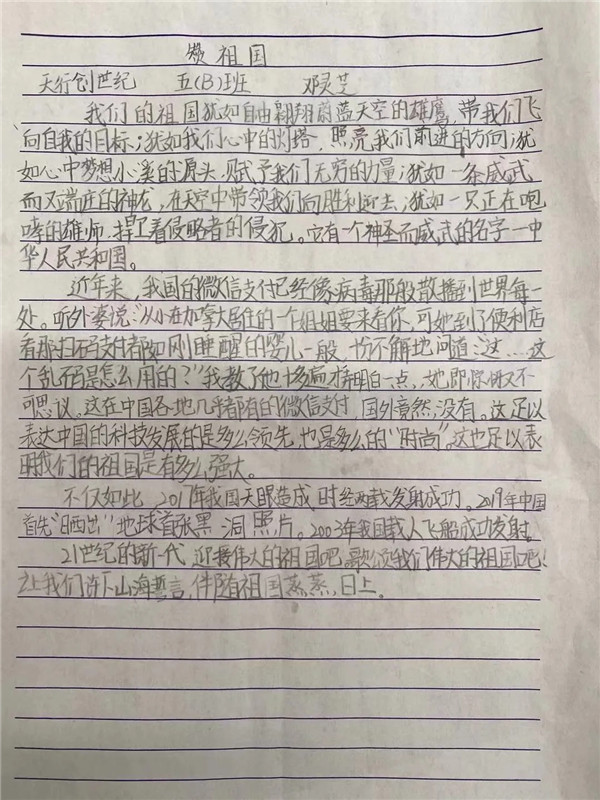 祖国
天行创世纪 五(B)班 邓灵芝
我们的祖国犹如自由翱翔蔚蓝天空的雄鹰,带我们飞
向自我的目标;犹如我们心中的灯塔,照亮我们前进的方向;犹
如心中梦想小溪的源头,赋予我们无穷的力量;犹如一条威武
而又端庄的神龙,在天空中带领我们向胜利迈去;犹如一只正在咆
哮的雄师,捍卫着侵略者的侵犯。它有一个神圣而威武的名字—中
华人民共和国。
近年来,我国的微信支付已经像病毒那般散播到世界每一
处。听外婆说:“从小在加拿大居住的一个姐姐要来看你,可她到了便利店
看那扫码支付都如刚睡醒的婴儿一般,不解地问道:“这……这
个乱码是怎么用的?”我教了他十多遍才明白一点,她即
可思议。这在中国各地几乎都有的微信支付,国外竟然没有。这足以
表达中国的科技发展的是多么领先,也是多么的“时尚”。这也足以表
明我们的祖国是有多么强大。
不仅如此,2017年我国天眼造成,时经两载发射成功。2019年中国
首先“晒出”地球首张黑洞照片。2003年我国载人飞船成功发射。
21世纪的新一代,迎接伟大的祖国吧,歌颂我们伟大的祖国吧!
让我们许下山海誓言,伴随祖国蒸蒸日上。